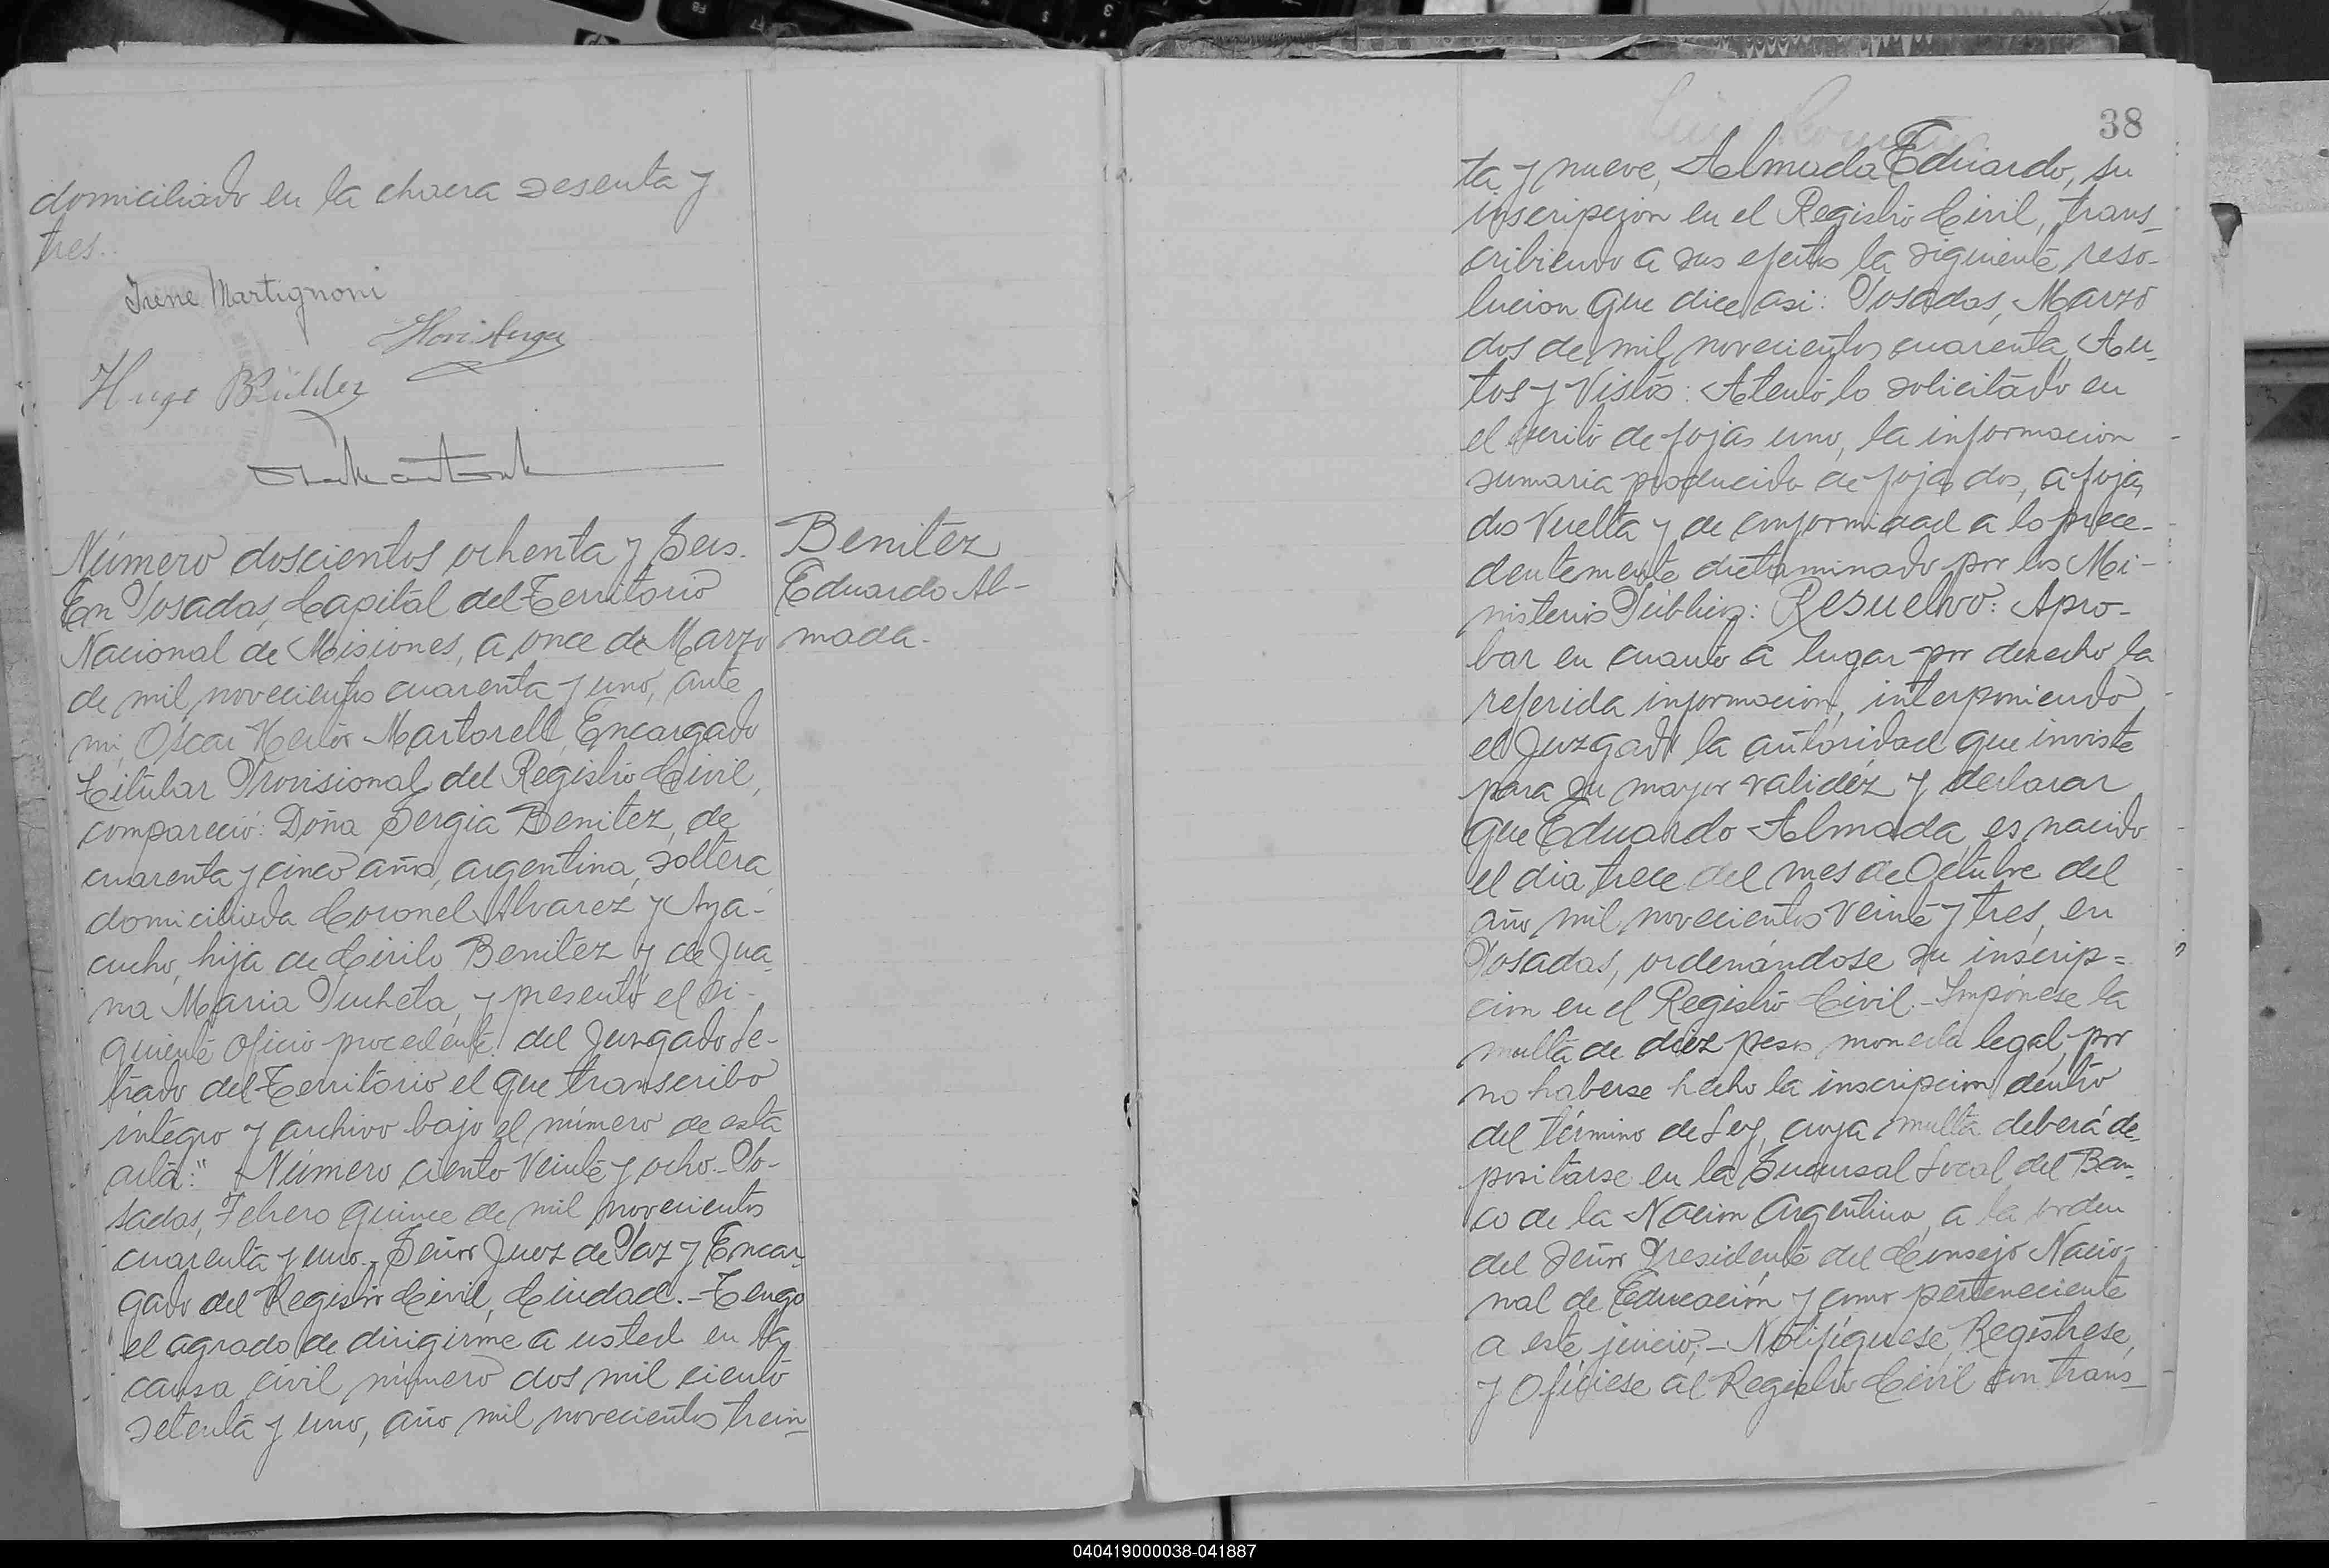 domiciliado en la chacra sesenta y
tres.
Irene Martignoni
Hugo
Número doscientos ochenta y Seis.
En Posadas, Capital del Territorio
Nacional de Misiones, a once de Marzo
de mil novecientos cuarenta y uno, ante
mi, Oscar Hector Martorell, Encargado
Titular Provisional del Registro Civil,
compareció: Doña Sergia Benitez, de
cuarenta y cinco años, argentina, soltera
domiciliada Coronel Alvarez y Aya-
cucho, hija de Cirilo Benitez y de Jua
na Maria Pucheta, y presentó el si-
guiente oficio procedente del Juzgado Le-
trado del Territorio el que transcribo
integro y archivo bajo el número de esta
acta: " Número ciento veinte y ocho.- Po-
sadas, Febrero quince de mil novecientos
cuarenta y uno.- Señor Juez de Paz y Encar-
gado del Registro Civil, Ciudad.- Tengo
el agrado de dirigirme a usted en la
causa civil número dos mil ciento
setenta y uno, año mil novecientos trein-
Benitez
Eduardo Al-
mada.
38
ta y nueve, Almada Eduardo, su
inscripción en el Registro Civil, trans-
cribiendo a sus efectos la siguiente reso-
lucion que dice asi: Posadas, Marzo
dos de mil novecientos cuarenta, Au-
tos y Vistos: Atento lo solicitado en
el escrito de fojas uno, la informacion
sumaria producida de fojas dos, a fojas
dos vuelta y de conformidad a lo prece-
dentemente dictaminado por los Mi-
nisterios Públicos: Resuelvo: Apro-
bar en cuanto a lugar por derecho la
referida informacion, interponiendo
el Juzgado la autoridad que inviste
para su mayor validéz y declarar
que Eduardo Almada, es nacido
el dia trece del mes de Octubre del
año mil novecientos veinte y tres, en
Posadas, ordenándose su inscrip=
cion en el Registro Civil.- Impónese la
multa de diez pesos moneda legal, por
no haberse hecho la inscripcion dentro
del término de Ley, cuya multa deberá de-
positarse en la Sucursal Local del Ban-
co de la Nacion Argentina, a la orden
del Señor Presidente del Consejo Nacio-
nal de Educación y como perteneciente
a este juicio;- Notifíquese, Regístrese,
y Ofíciese al Registro Civil con trans-
040419000038-041887